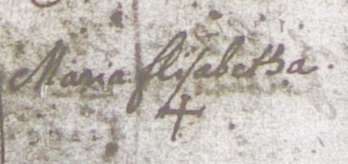 Maria Elisabetha.
+